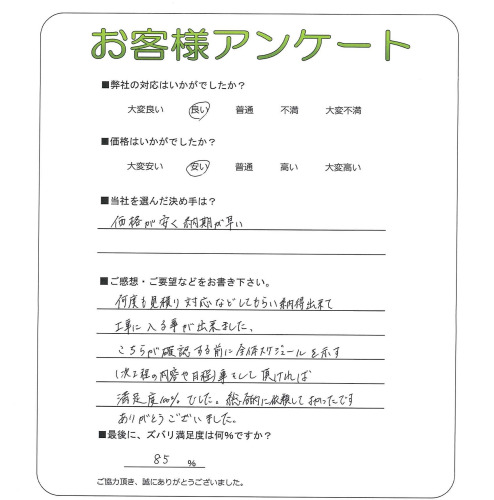 お客様アンケート
■弊社の対応はいかがでしたか？
大変良い 良い 普通 不満 大変不満
■価格はいかがでしたか？
大変安い 安い 普通 高い 大変高い
■当社を選んだ決め手は？
価格が安く納期が早い
■ご感想・ご要望などをお書き下さい。
何度も見積り対応などしてもらい納得出来て
工事に入る事が出来ました、
こちらが確認する前に全体スケジュールを示す
(次工程の内容や日程)事をして頂ければ
満足度100%でした。総合的に依頼して良かったです
ありがとうございました。
■最後に、ズバリ満足度は何％ですか？
85 %
ご協力頂き、誠にありがとうございました。